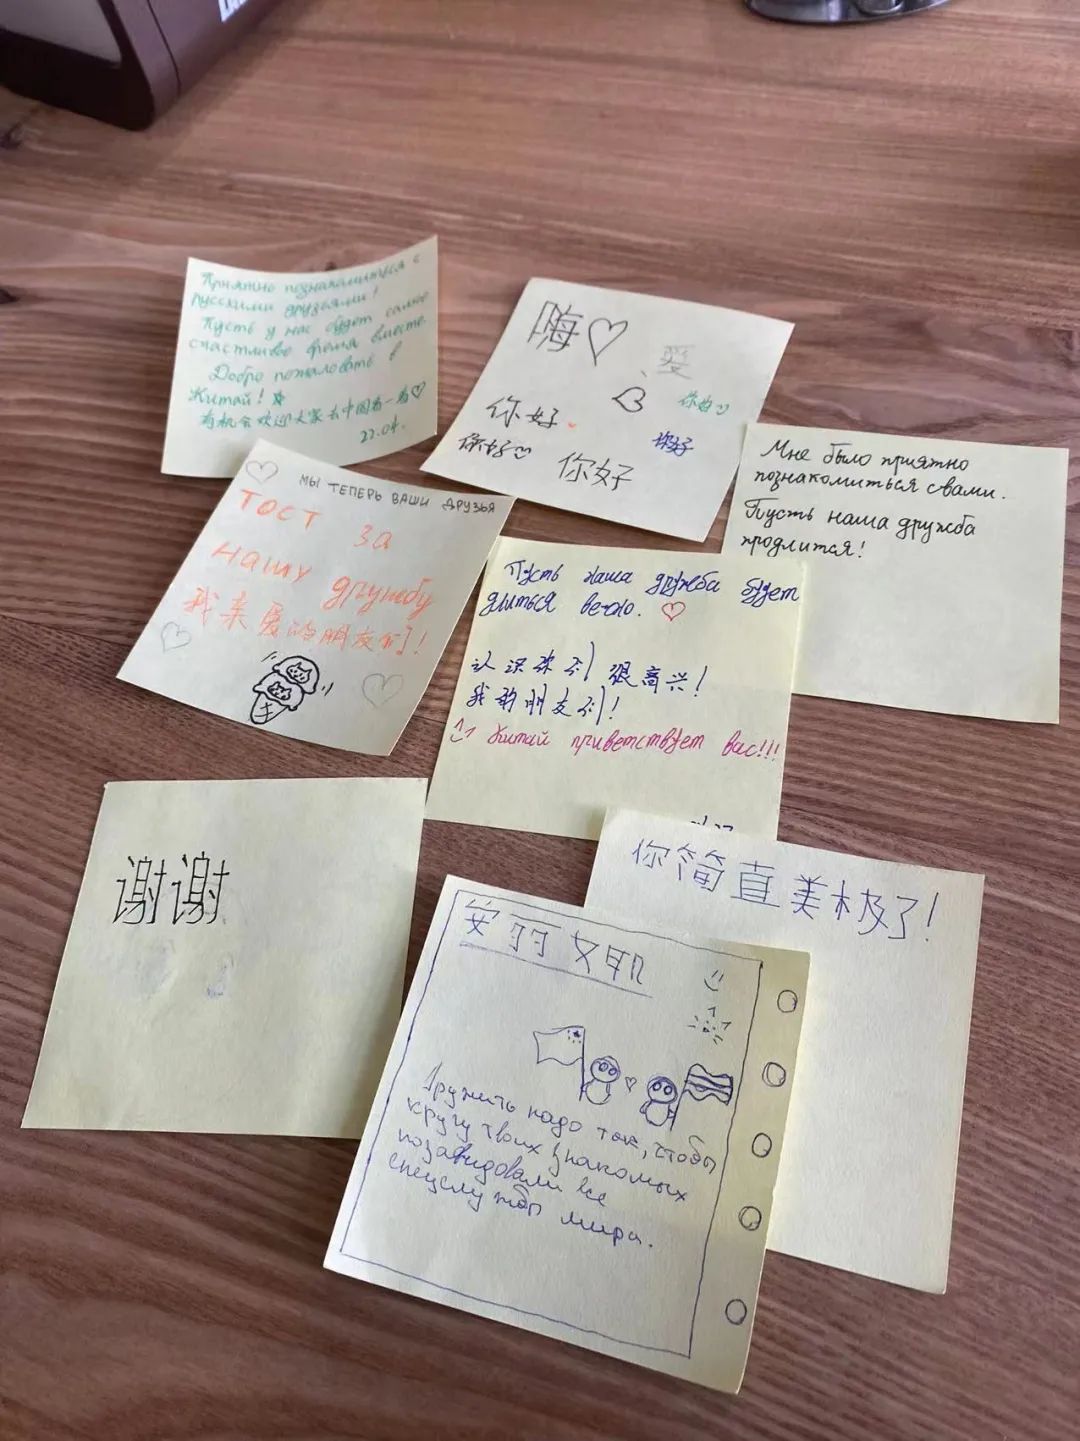 Приятно познакомиться с
русскими друзьями!
Пусть у нас будет самое
счастливое время вместе.
Добро пожаловать в
Китай!
有机会欢迎大家去中国看一看♡
22.04.
嗨♡
爱
你好
你好
你好
你好
你好
Мне было приятно
познакомиться с вами.
Пусть наша дружба
продлится!
МЫ ТЕПЕРЬ ВАШИ ДРУЗЬЯ
ТОСТ за
нашу дружбу
我亲爱的朋友们!
Пусть наша дружба будет
длиться вечно. ♡
认识你们很高兴!
我的朋友们!
Китай приветствует вас!!!
谢谢
你简直美极了!
安丽
Дружить надо так, чтобы
кругу твоих знакомых
позавидовали все
спецслужбы мира.